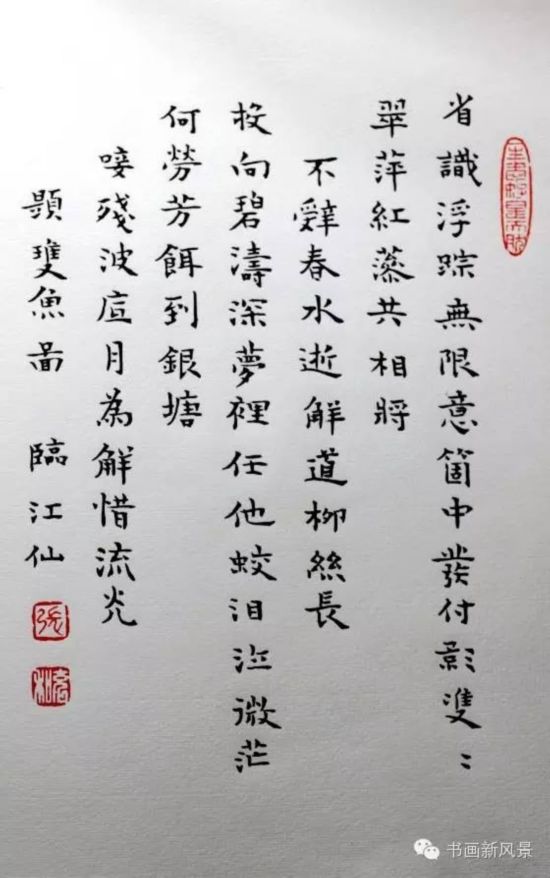 省識浮踪無限意箇中發付影雙〻
翠萍紅蕅共相將
不辤春水逝解道柳絲長
投向碧濤深夢裡任他蛟泪泣微茫
何勞芳餌到銀塘
唼殘波底月為解惜流光
題雙魚啚 臨江仙
張
书画新风景